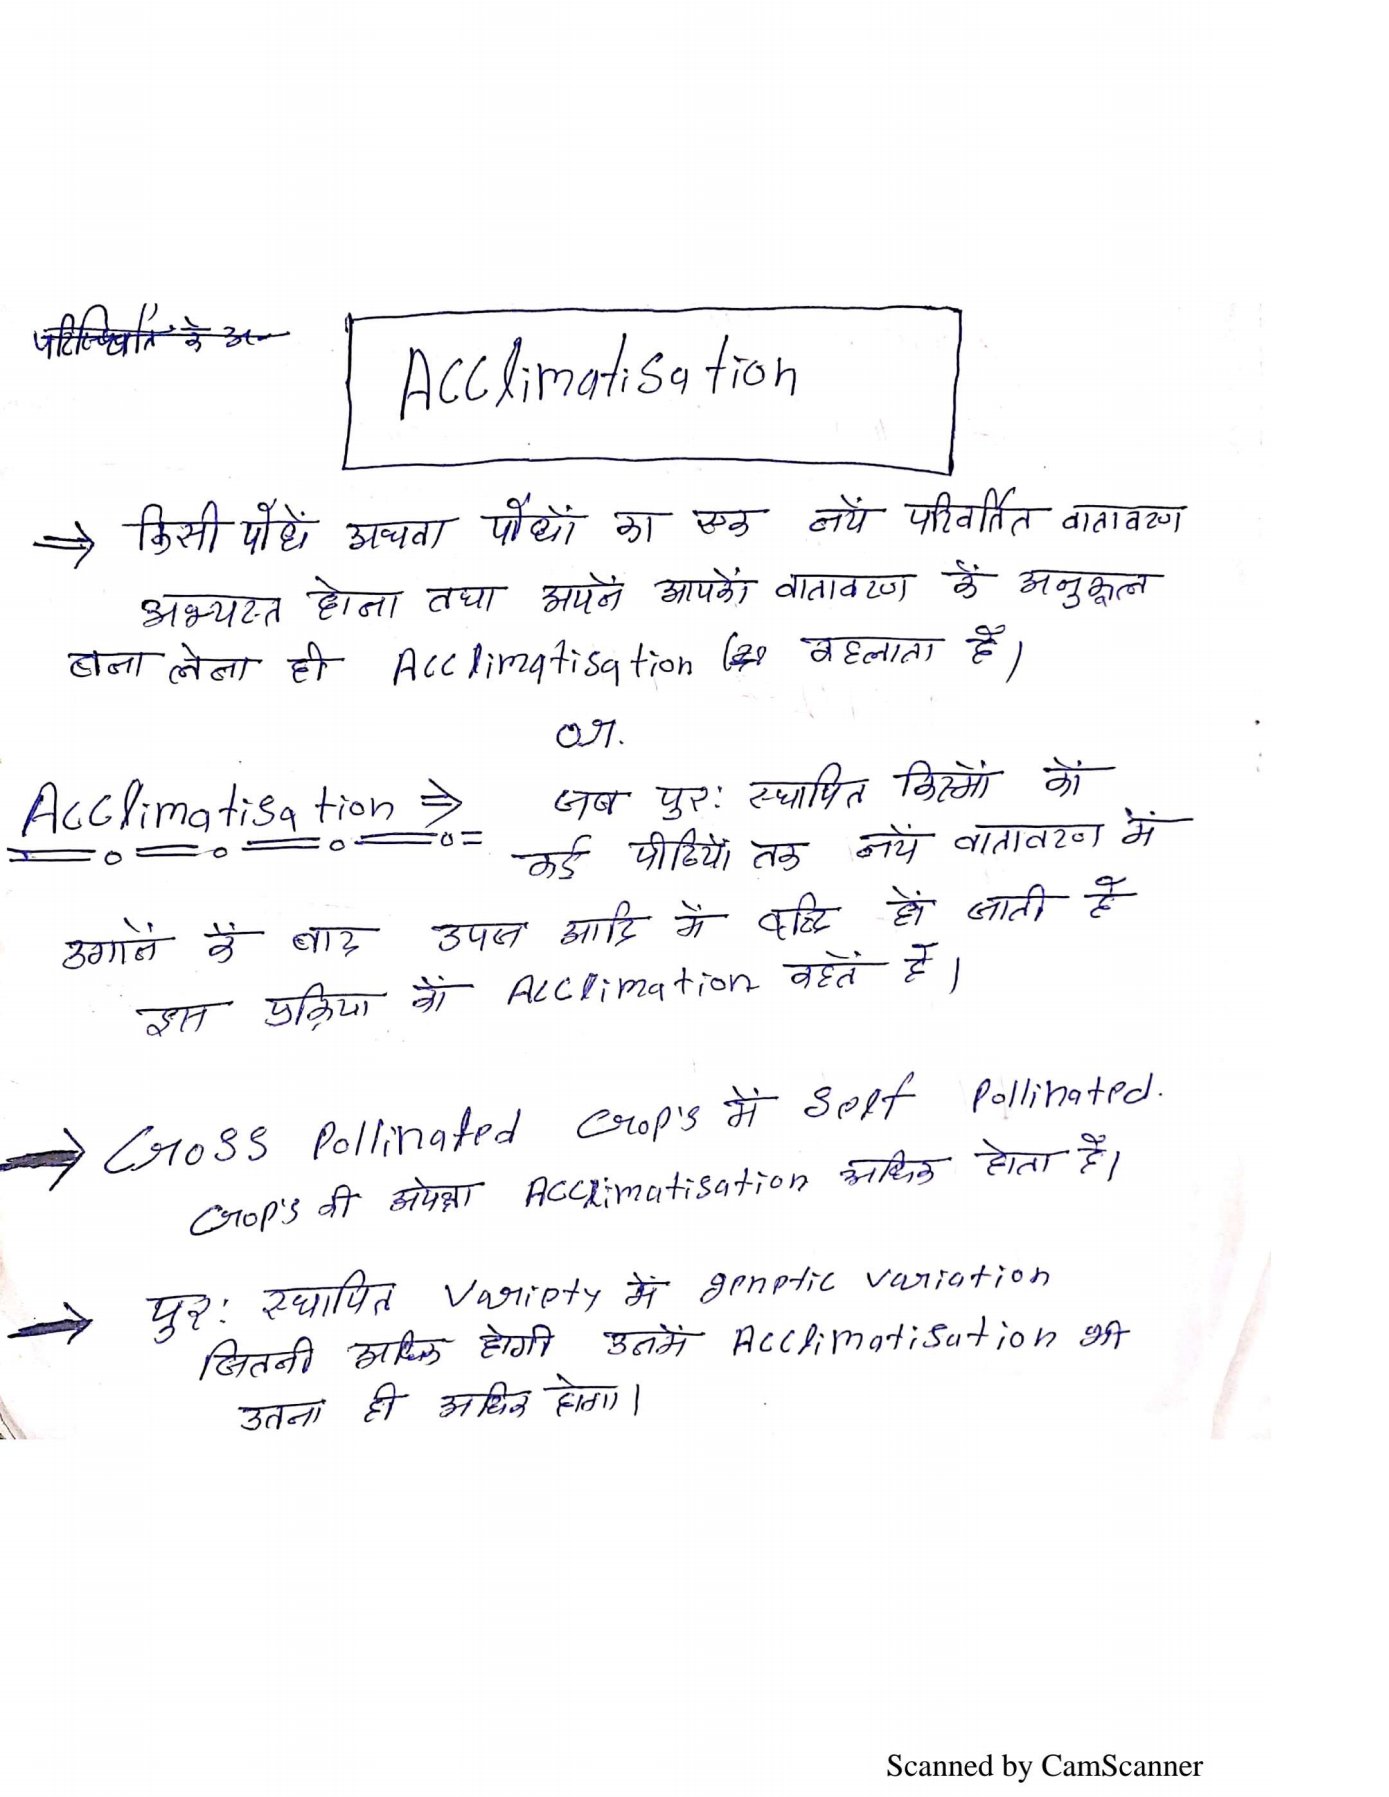 परिस्थिति के अ
Acclimatisation
⇒ किसी पौधें अथवा पौधों का एक नयें परिवर्तित वातावरण
अभ्यस्त होना तथा अपनें आपकों वातावरण कें अनुकूल
बना लेना ही Acclimatisation कहलाता है।
or.
Acclimatisation ⇒ जब पुर: स्थापित किस्मों कों
कई पीढियों तक नयें वातावरण में
उगानें कें बाद उपज आदि में वृद्धि हों जाती है
इस प्रक्रिया कों Acclimation कहतें है।
→ Cross Pollinated Crop's में Self Pollinated.
Crop's की अपेक्षा Acclimatisation अधिक होता है।
→ पुर: स्थापित Variety में genetic variation
जितनी अधिक होगी उनमें Acclimatisation भी
उतना ही अधिक होगा।
Scanned by CamScanner